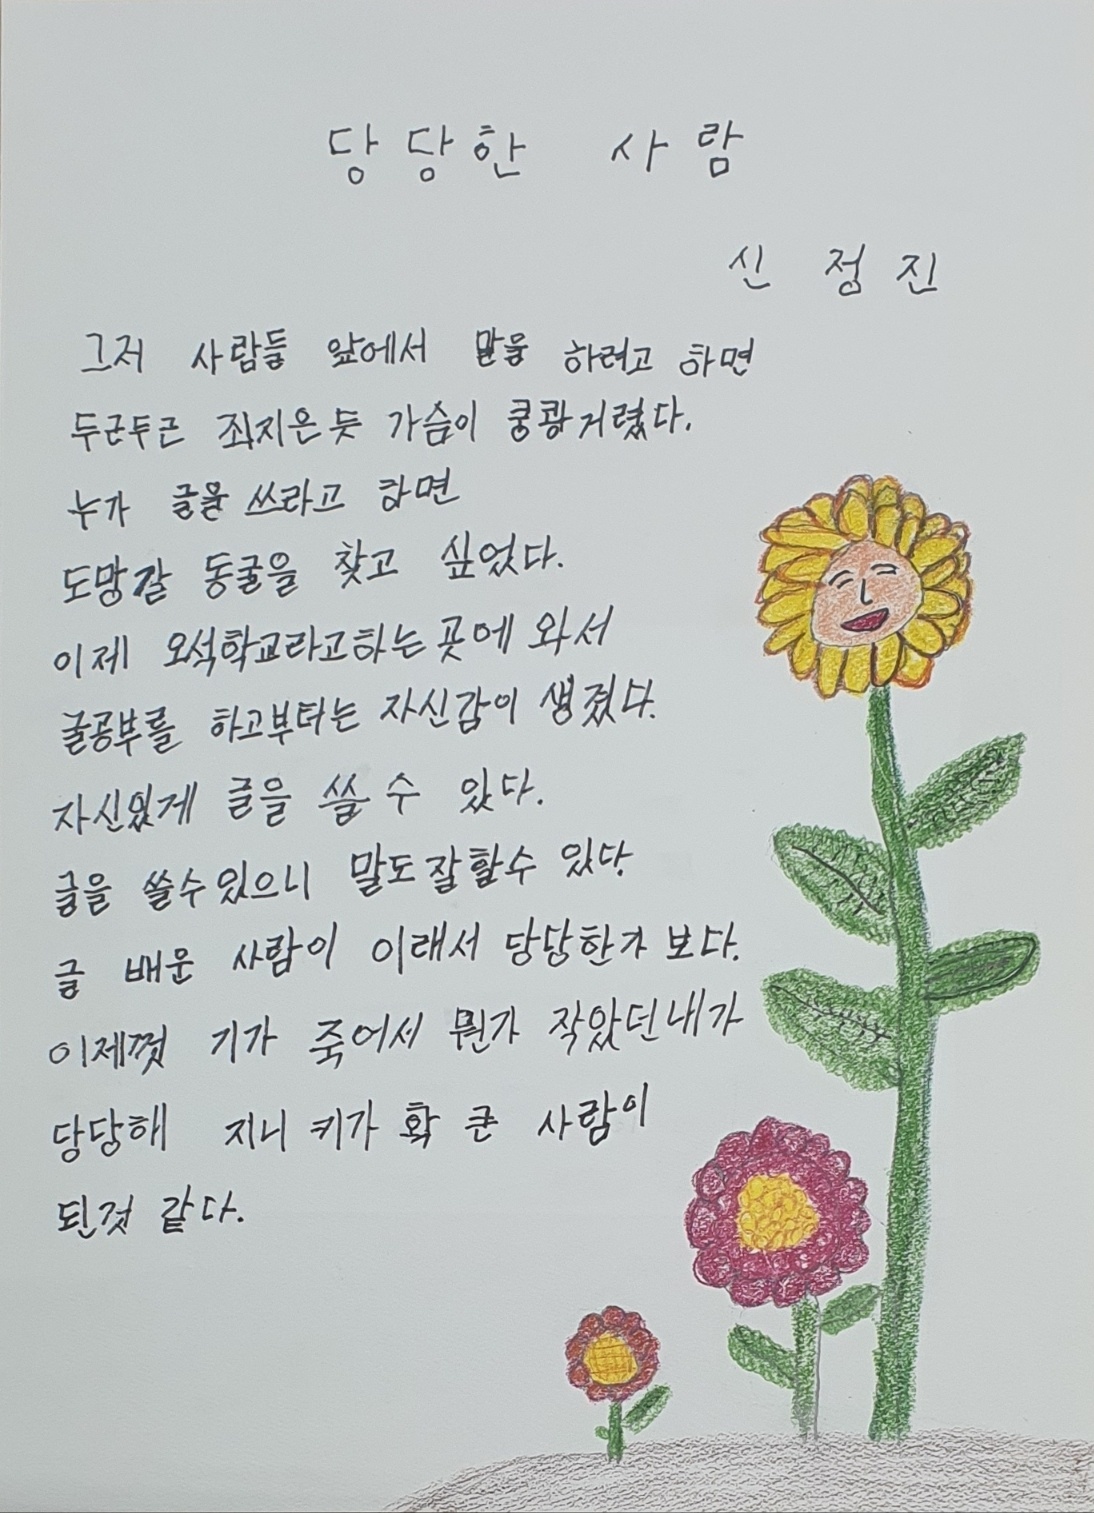 당당한 사람
신정진
그저 사람들 앞에서 말을 하려고 하면
두근두근 죄지은듯 가슴이 쿵쾅거렸다.
누가 글을 쓰라고 하면
도망갈 동굴을 찾고 싶었다.
이제 오석학교라고하는곳에 와서
글공부를 하고부터는 자신감이 생겼다.
자신있게 글을 쓸 수 있다.
글을 쓸수있으니 말도잘할수 있다.
글 배운 사람이 이래서 당당한가 보다.
이제껏 기가 죽어서 뭔가 작았던내가
당당해 지니 키가 확 큰 사람이
된것 같다.